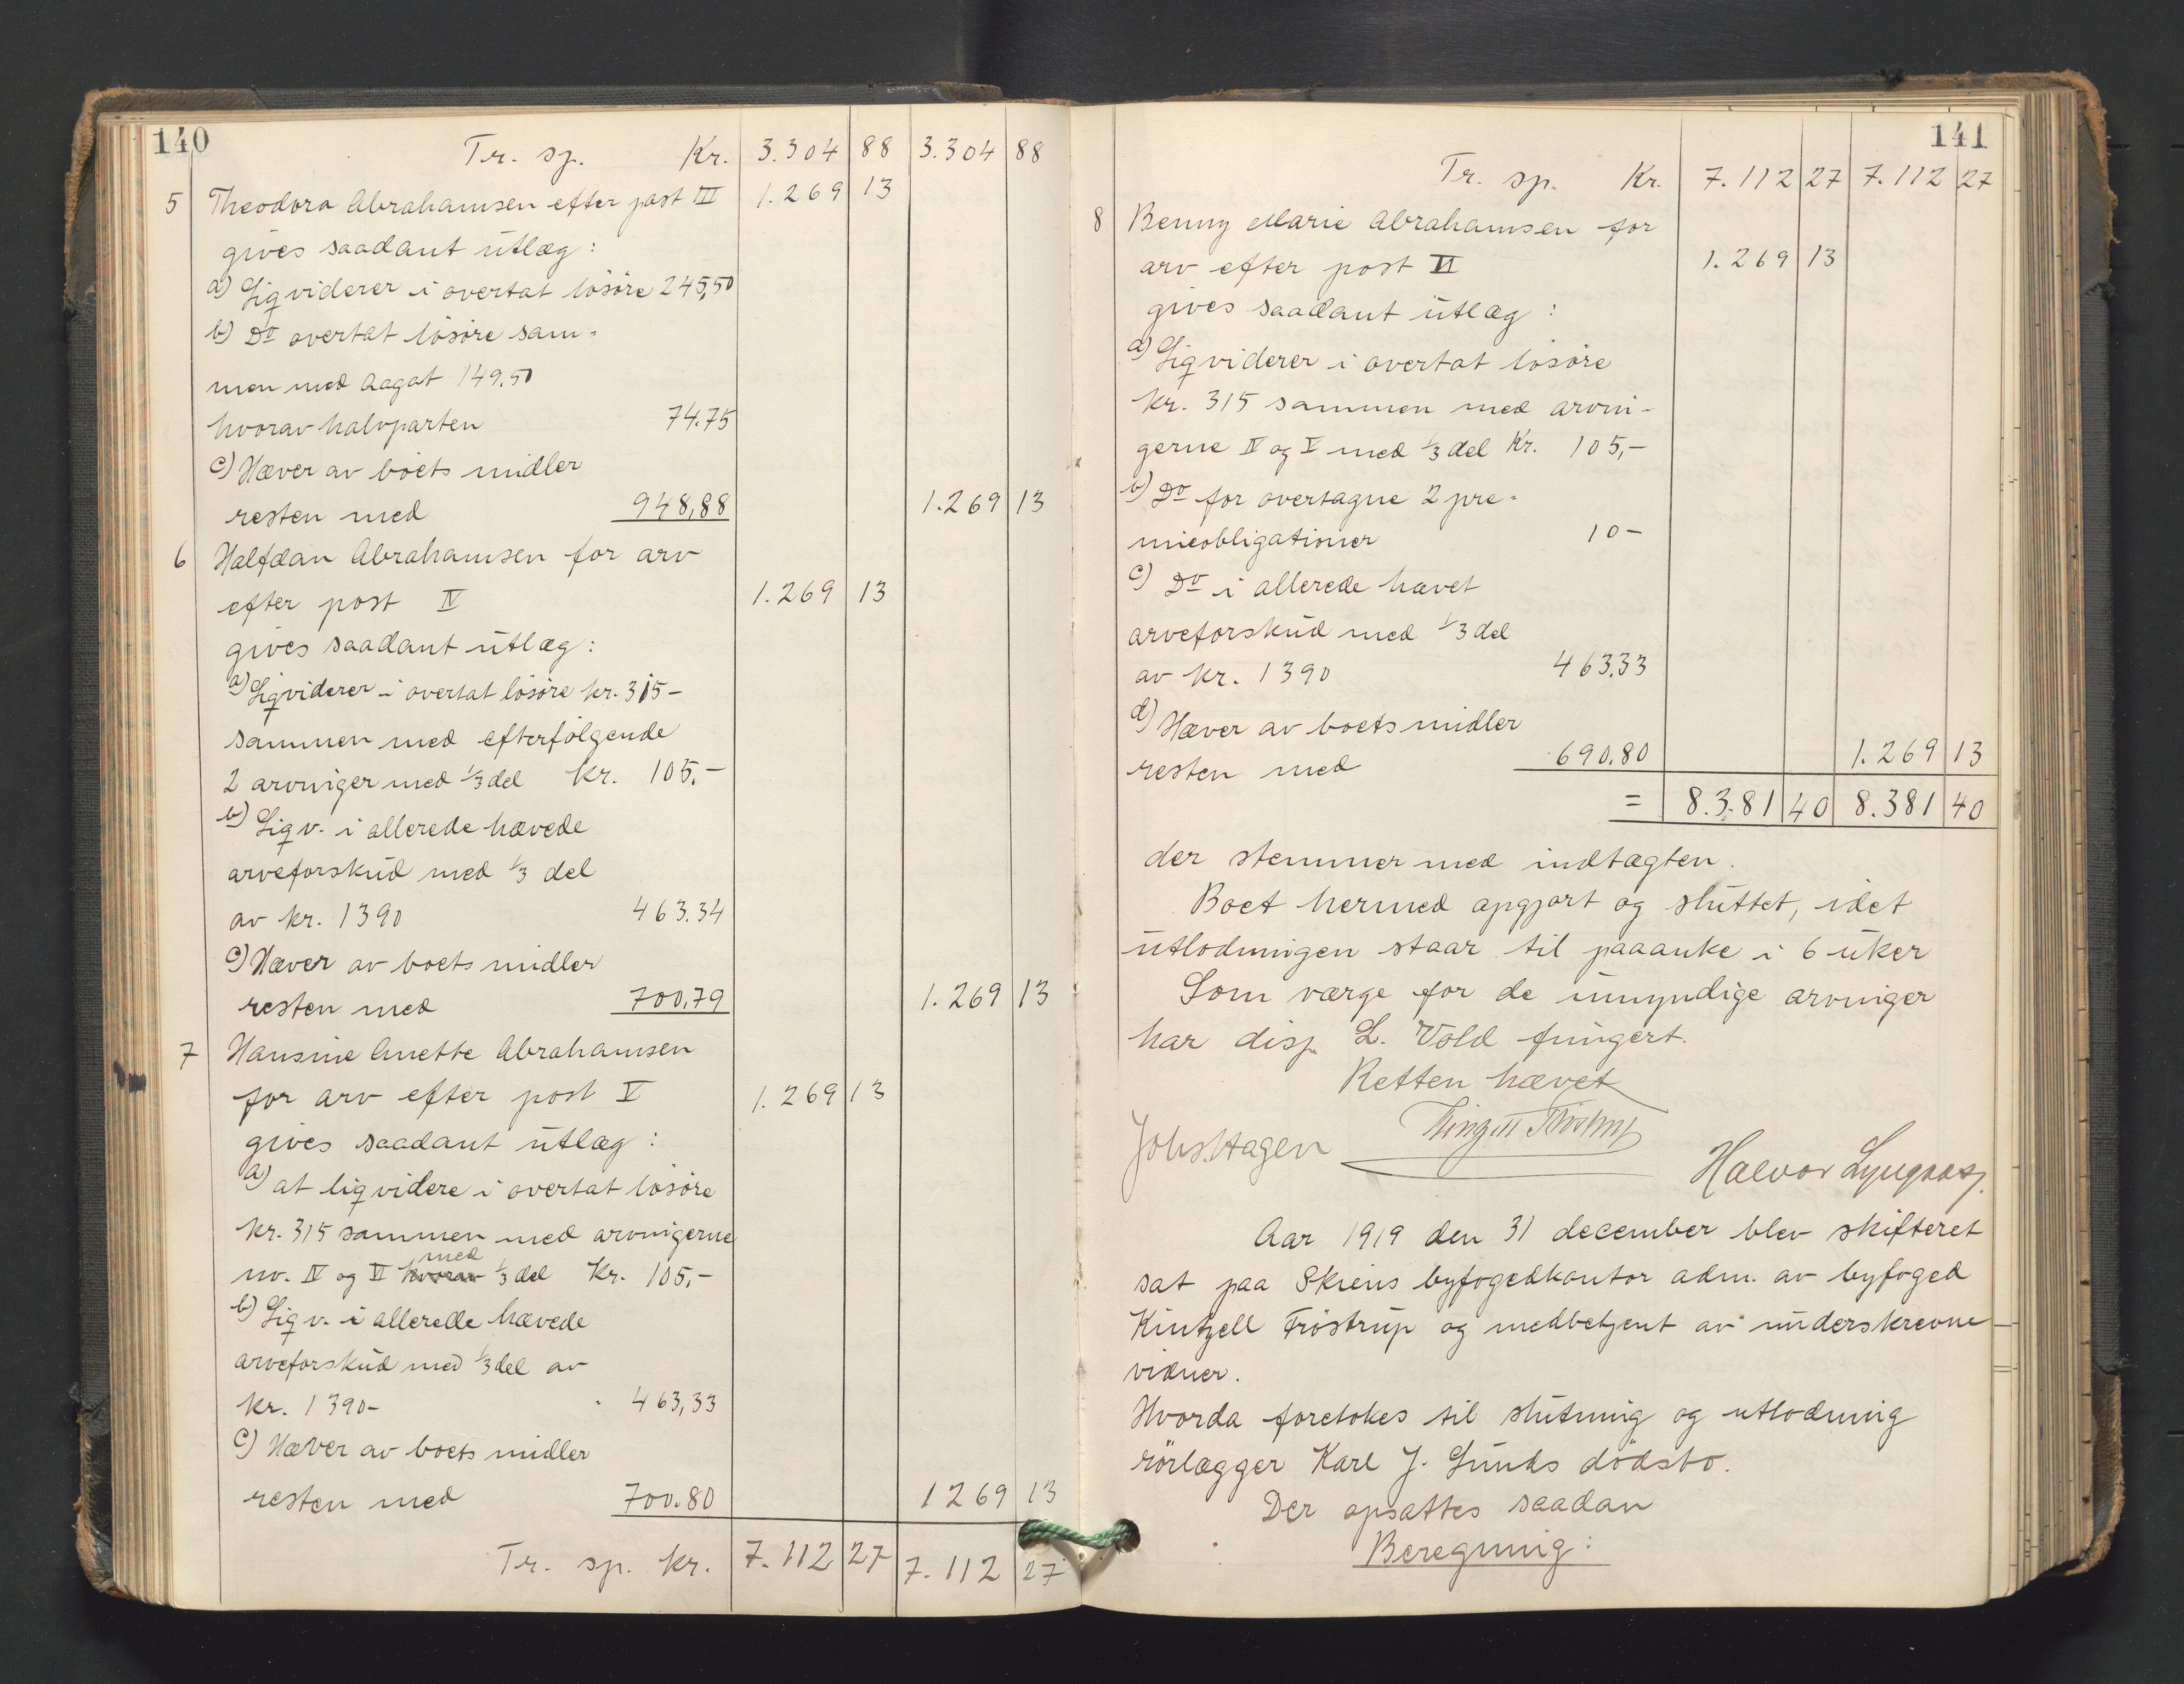 140
Tr. sp. Kr. 3.304 88 3.304 88
5 Theodora Abrahamsen efter post III 1.269 13
gives saadant utlæg:
a) Liqviderer i overtat lösöre 245,50
b) Do overtat lösöre sam-
men med Aagot 149.50
hvorav halvparten 74.75
c) Hæver av boets midler
resten med 948,88 1.269 13
6 Halfdan Abrahamsen for arv
efter post IV 1.269 13
gives saadant utlæg:
a) Liqviderer i overtat lösöre kr. 315-
sammen med efterfölgende
2 arvinger med 1/3 del Kr. 105.-
b) Liqv. i allerede hævede
arveforskud med 1/3 del
av kr. 1390 463.34
c) Hæver av boets midler
resten med 700,79 1.269 13
7 Hansine Anette Abrahamsen
for arv efter post V 1.269 13
gives saadant utlæg:
a) at liqvidere i overtat lösöre
kr. 315 sammen med arvingerne
med
no. IV og VI hvorav 1/3 del Kr. 105,-
b) Liqv. i allerede hævede
arveforskud med 1/3 del av
kr. 1390- 463,33
c) Hæver av boets midler
resten med 700.80 1269 13
Tr. sp. kr. 7.112 27 7.112 27
141
Tr. sp. Kr. 7.112 27 7.112 27
8 Benny Marie Abrahamsen for
arv efter post VI 1.269 13
gives saadant utlæg:
a) Liqviderer i overtat lösöre
kr. 315 sammen med arvin-
gerne IV og V med 1/3 del Kr. 105,-
b) Do for overtagne 2 pre-
mieobligationer 10-
c) Do i allerede hævet
arveforskud med 1/3 del
av kr. 1390 463,33
d) Hæver av boets midler
resten med 690,80 1.269 13
= 8.381 40 8.381 40
der stemmer med indtægten.
Boet hermed opgjort og sluttet, idet
utlodningen staar til paaanke i 6 uker
Som værge for de umyndige arvinger
har disp. L. Vold fungert.
Retten hævet
Johs. Hagen
Halvor Lyngaas
Aar 1919 den 31 december blev skifteret
sat paa Skiens byfogedkontor adm. av byfoged
Kintzell Fröstrup og medbetjent av underskrevne
vidner.
Hvorda foretokes til slutning og utlodning
rörlægger Karl J. Lunds dödsbo.
Der opsattes saadan
Beregning: